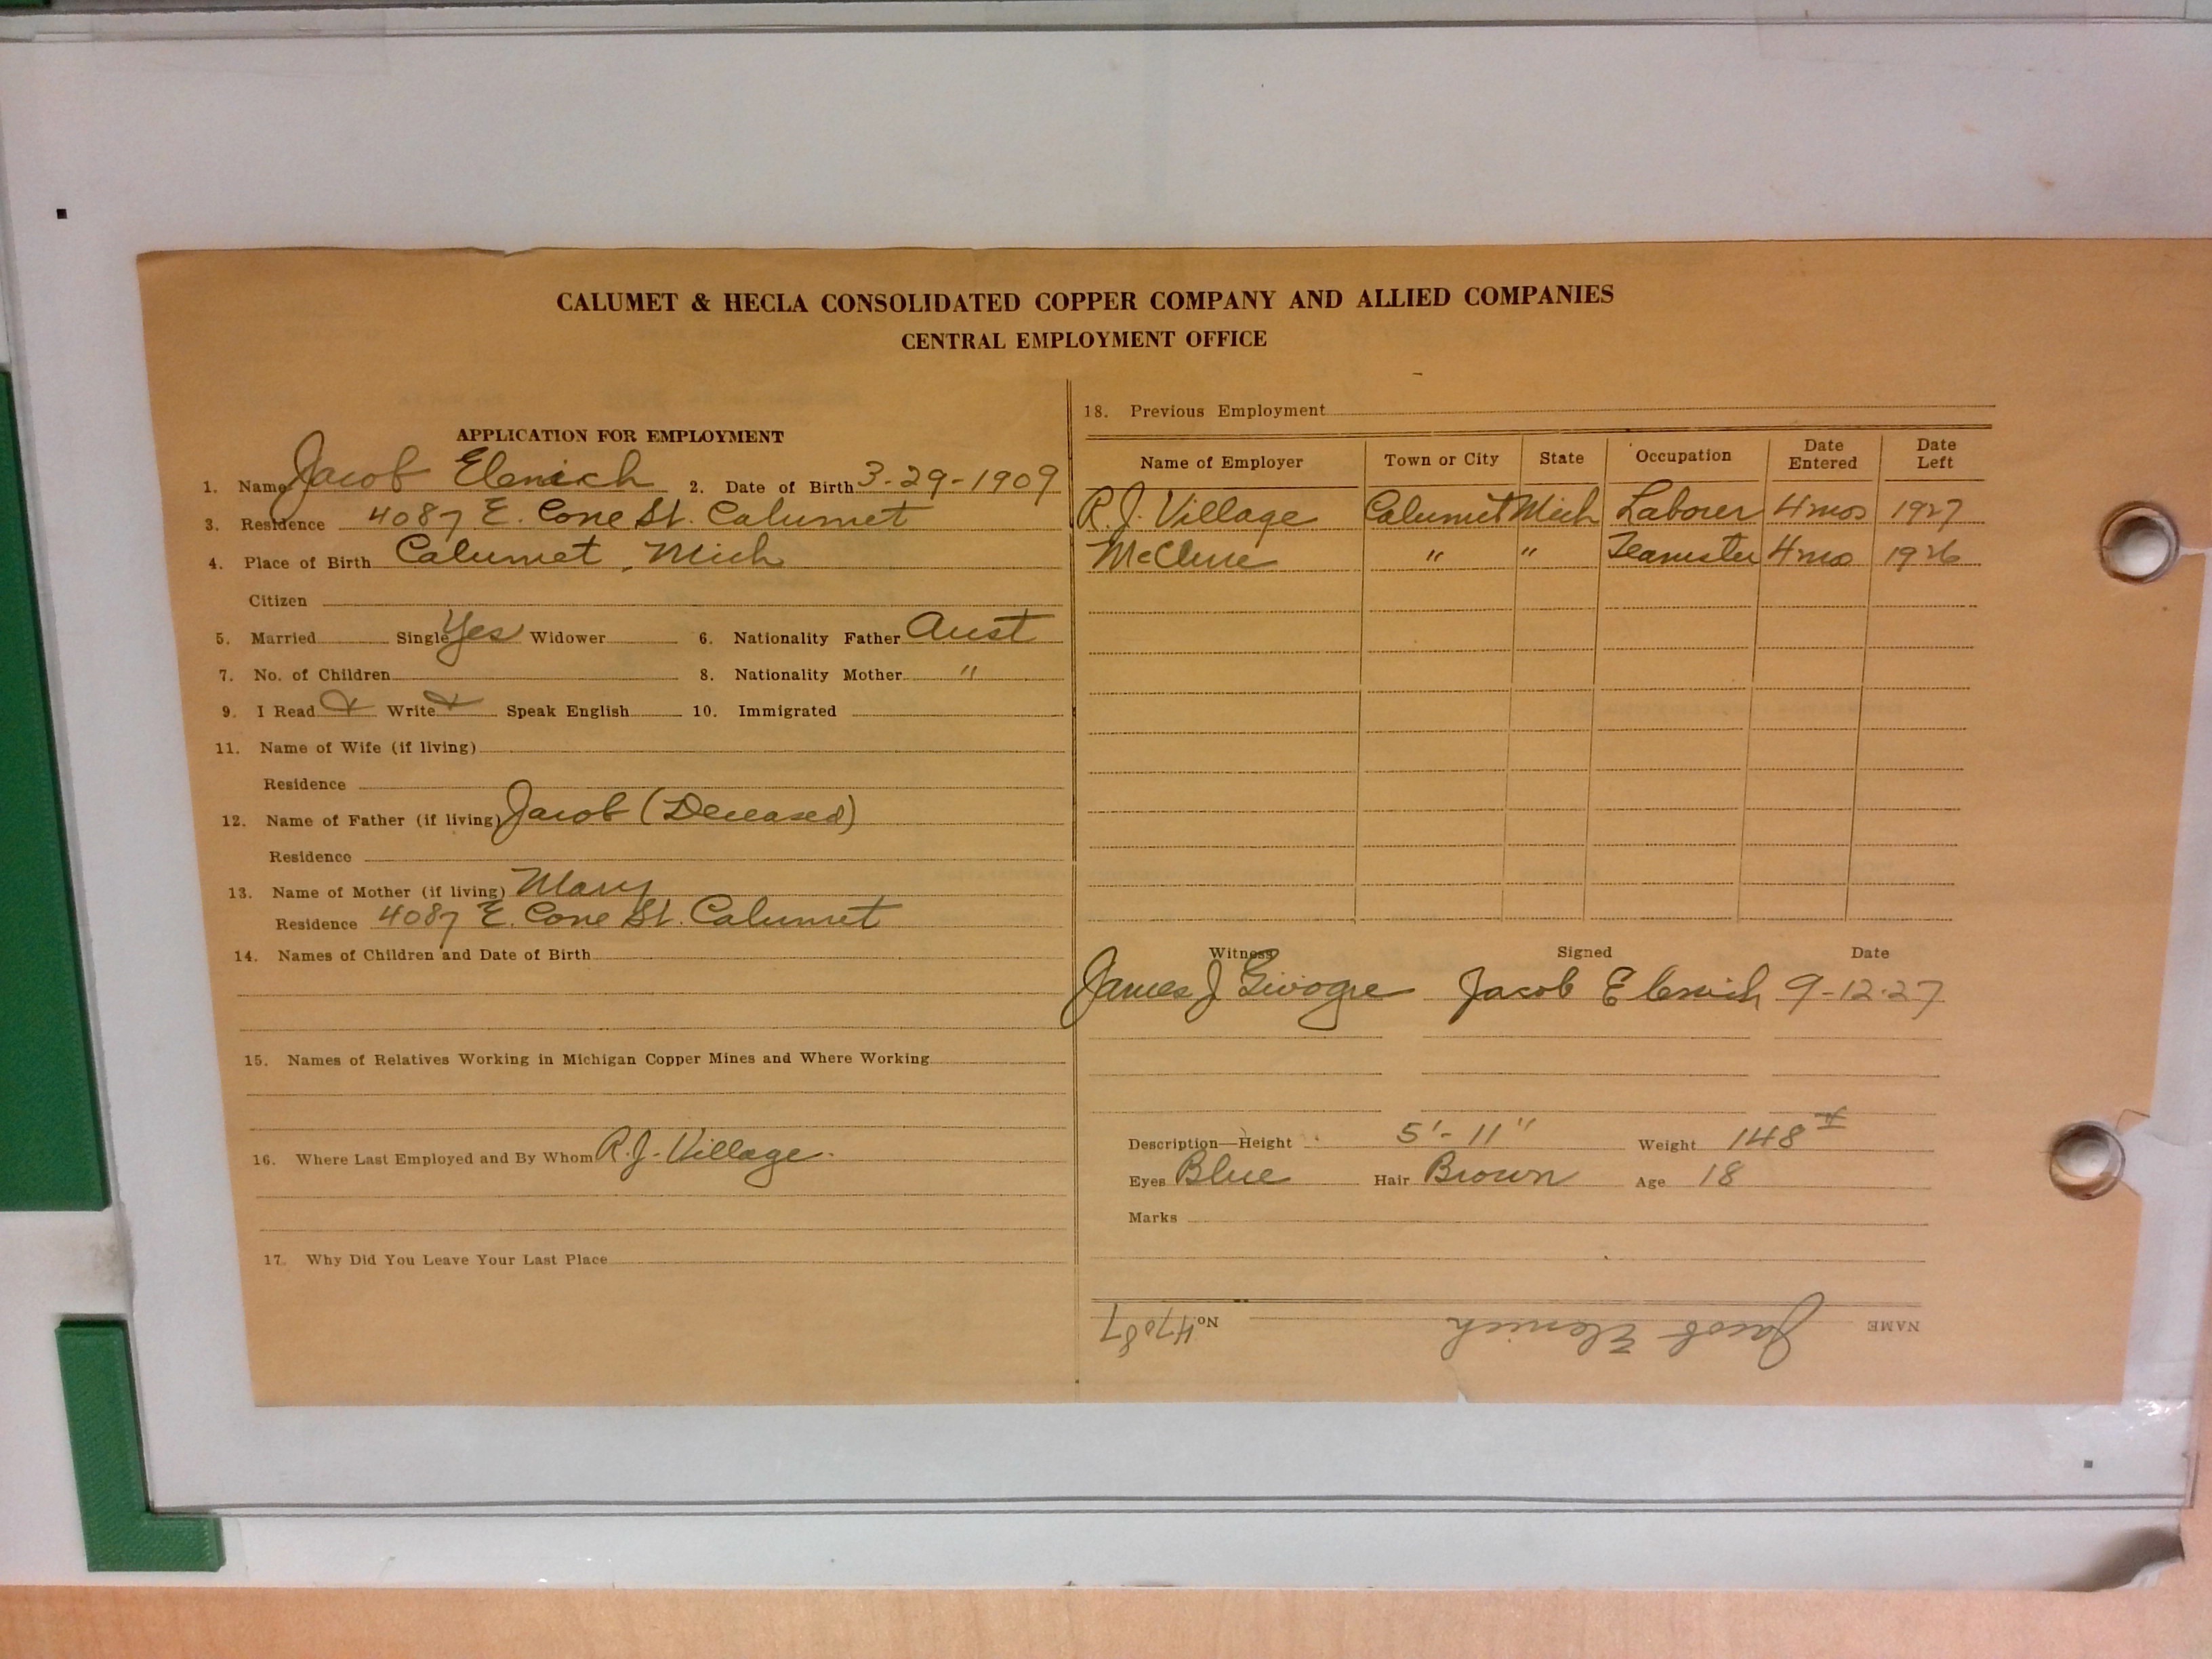 CALUMET & HECLA CONSOLIDATED COPPER COMPANY AND ALLIED COMPANIES
CENTRAL EMPLOYMENT OFFICE
APPLICATION FOR EMPLOYMENT
1. Name Jacob Elenich 2. Date of Birth 3-29-1909
3. Residence 4087 E. Cone St. Calumet
4. Place of Birth Calumet, Mich
Citizen
5. Married Single Yes Widower 6. Nationality Father Aust
7. No. of Children 8. Nationality Mother "
9. I Read X Write X Speak English 10. Immigrated
11. Name of Wife (if living)
Residence
12. Name of Father (if living) Jacob (Deceased)
Residence
13. Name of Mother (if living) Mary
Residence 4087 E. Cone St. Calumet
14. Names of Children and Date of Birth
15. Names of Relatives Working in Michigan Copper Mines and Where Working
16. Where Last Employed and By Whom R.J. Village.
17. Why Did You Leave Your Last Place
18. Previous Employment
Name of Employer Town or City State Occupation Date Entered Date Left
R.J. Village Calumet Mich Laborer 4 mos 1927
McClure " " Teamster 4 mo 1926
Witness Signed Date
James J Jacob Elenich 9-12-27
Description—Height 5'-11" Weight 148 #
Eyes Blue Hair Brown Age 18
Marks
NAME Jacob Elenich No. 47087